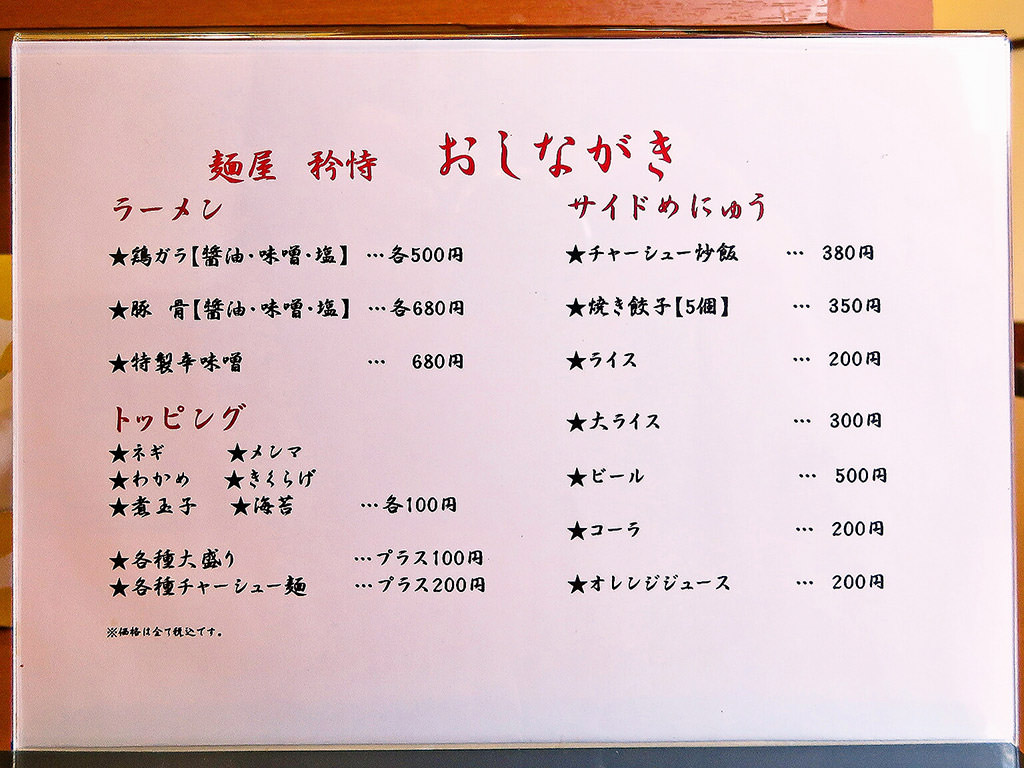 麺屋 矜恃 おしながき
ラーメン
★鶏ガラ【醤油・味噌・塩】 …各500円
★豚 骨【醤油・味噌・塩】 …各680円
★特製辛味噌 … 680円
トッピング
★ネギ ★メンマ
★わかめ ★きくらげ
★煮玉子 ★海苔 …各100円
★各種大盛り …プラス100円
★各種チャーシュー麺 …プラス200円
※価格は全て税込です。
サイドめにゅう
★チャーシュー炒飯 … 380円
★焼き餃子【5個】 … 350円
★ライス … 200円
★大ライス … 300円
★ビール … 500円
★コーラ … 200円
★オレンジジュース … 200円